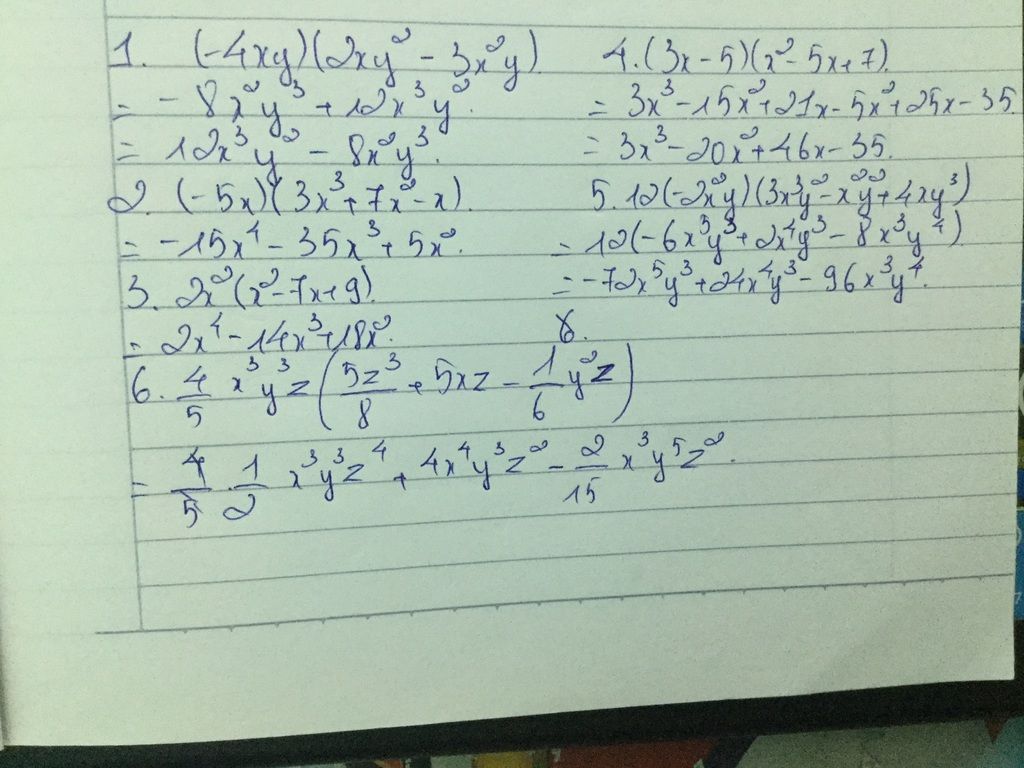 1. (-4xy)(2xy² - 3x²y).
= -8x²y³ + 12x³y².
= 12x³y² - 8x²y³.
2. (-5x)(3x³+7x²-x).
= -15x⁴ - 35x³ + 5x².
3. 2x²(x²-7x+9).
= 2x⁴ - 14x³+18x².
4. (3x-5)(x²-5x+7).
= 3x³-15x²+21x-5x²+25x-35.
= 3x³-20x²+46x-35.
5. 12(-2x²y)(3x³y²-x²y²+4xy³)
= 12(-6x⁵y³+2x⁴y³-8x³y⁴)
= -72x⁵y³+24x⁴y³-96x³y⁴.
8.
6. 4/5 x³y³z (5z³/8 + 5xz - 1/6 y²z)
= 4/5 . 1/2 x³y³z⁴ + 4x⁴y³z² - 2/15 x³y⁵z².